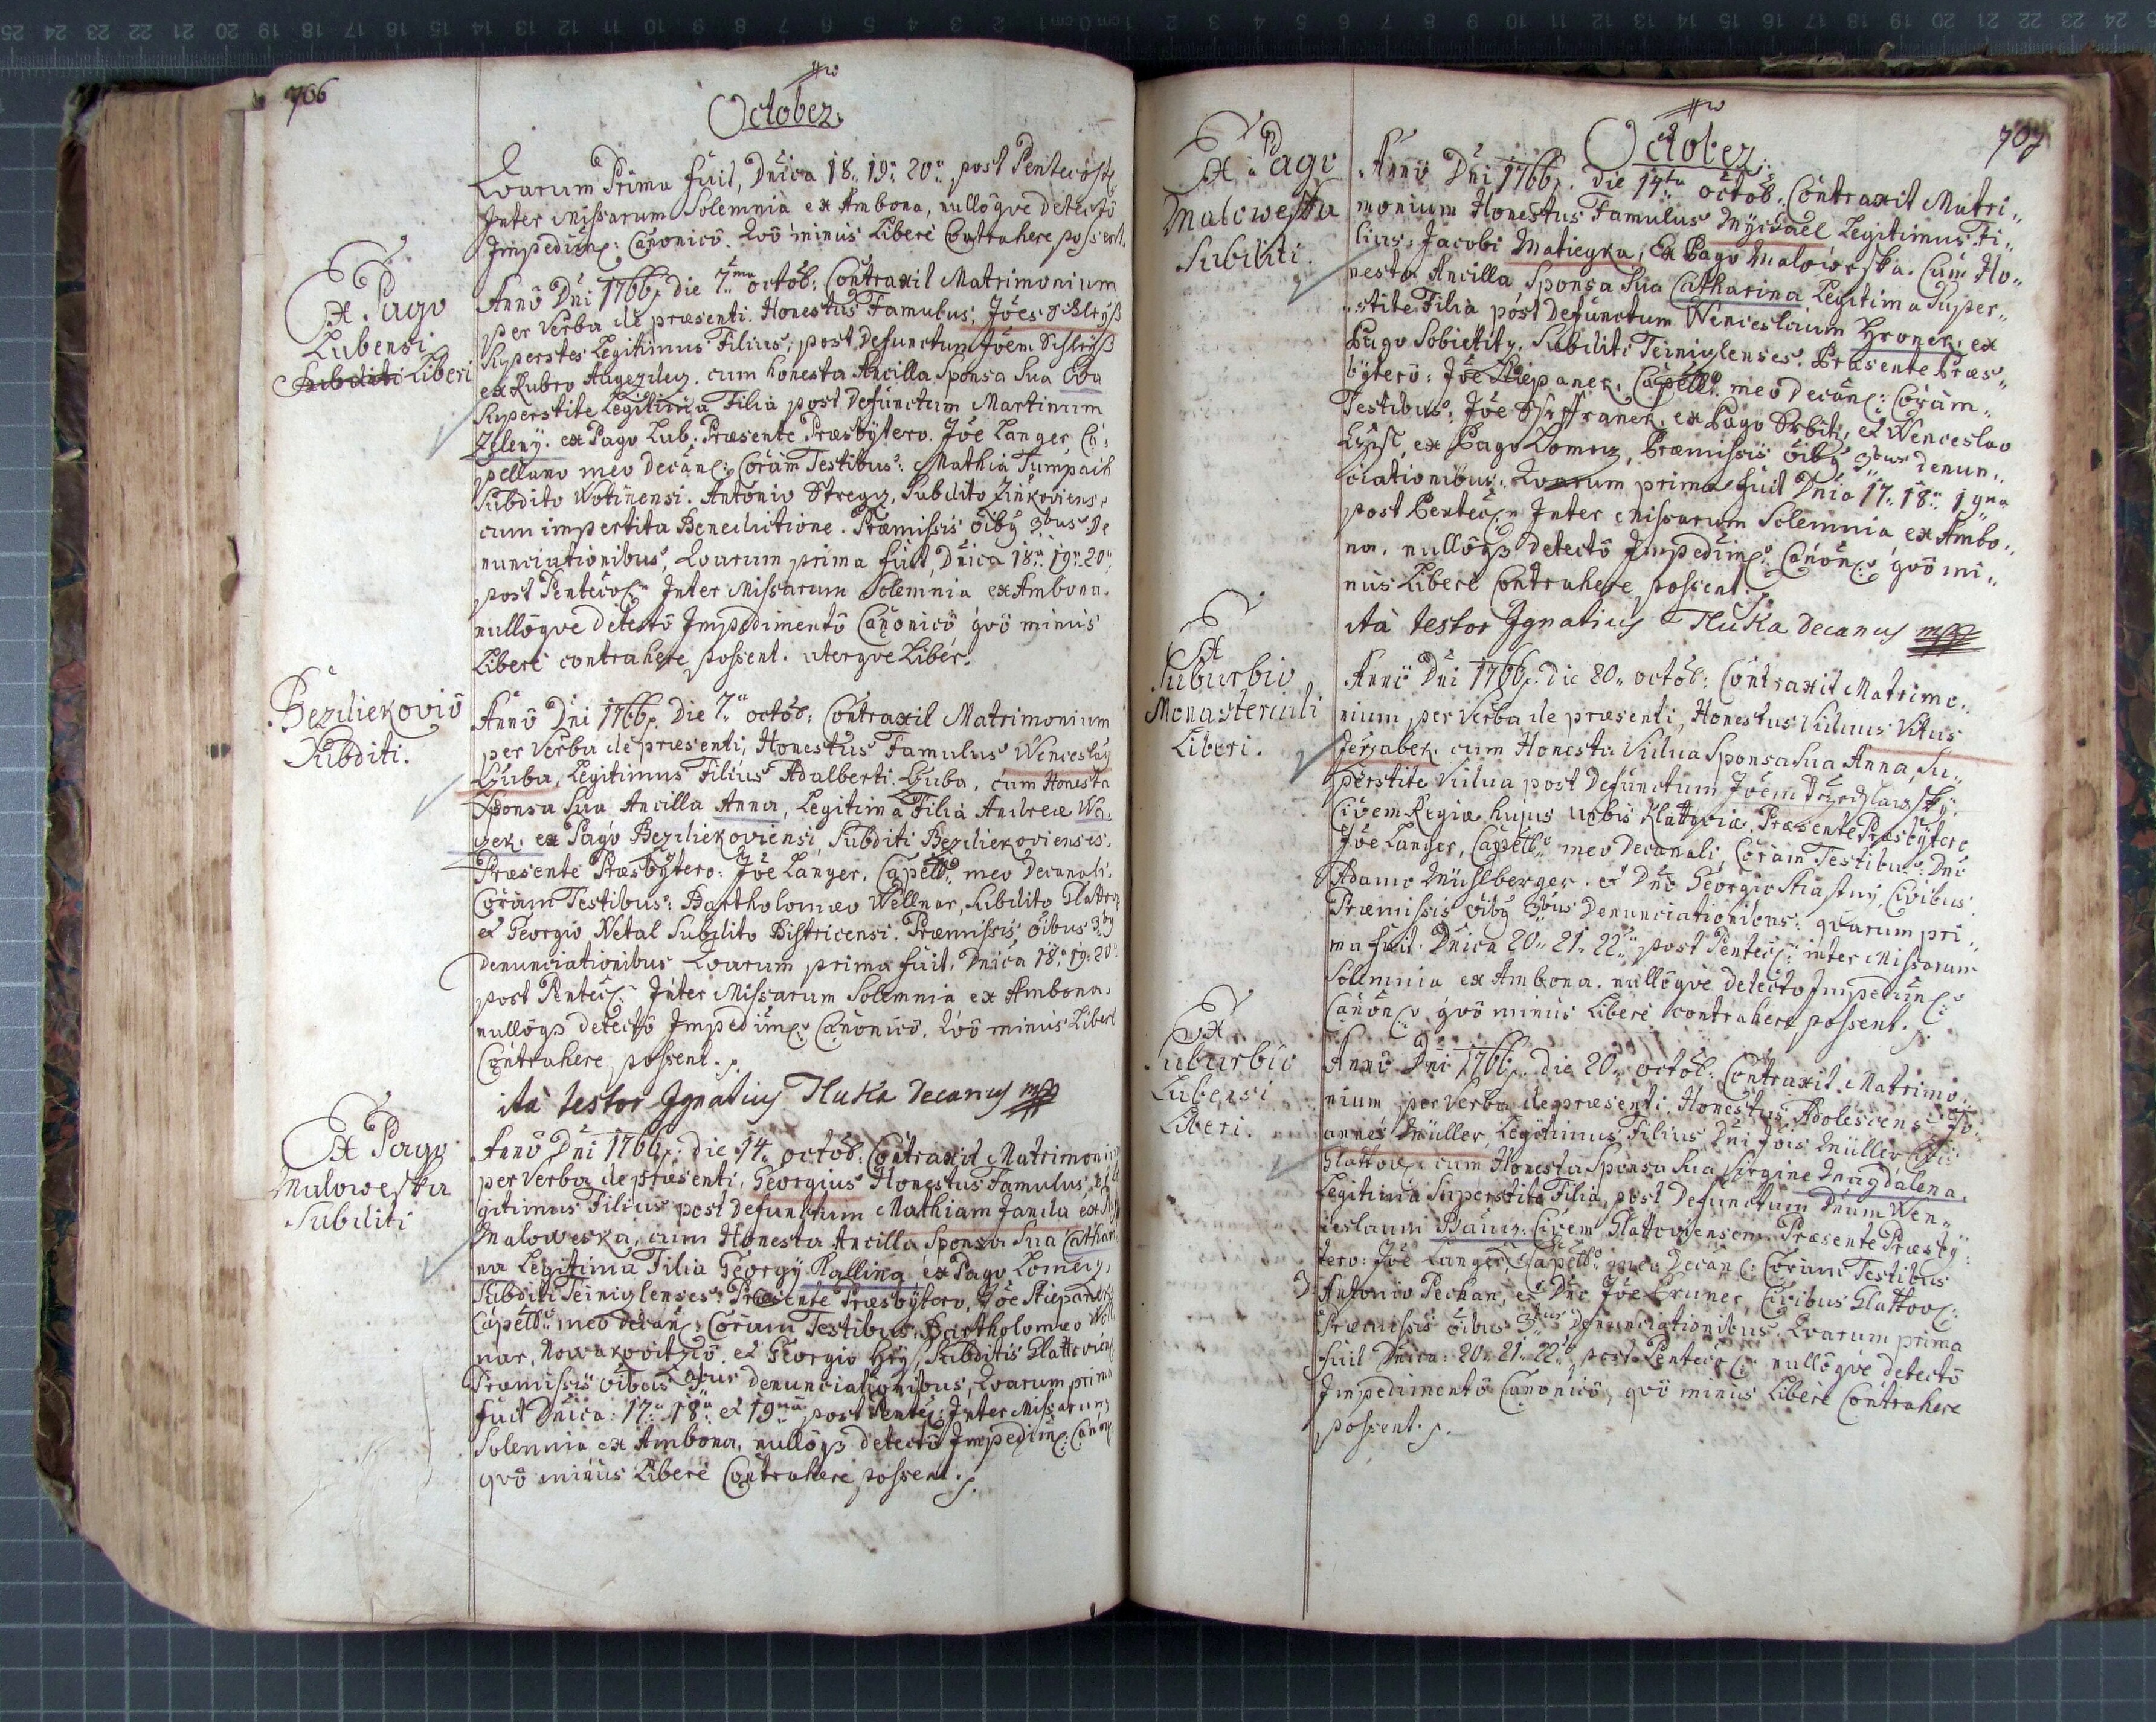 706
October
Qvarum Prima fuit, Dnica 18. 19. 20. post Pentecoste
Inter Missarum Solemnia ex Ambona, nullôqve detectô
Impedim: Canonicô. Qvô minùs Liberè Contrahere possent.
Ex Pago
Lubensi
Subditi Liberi
Annô Dni 1766. Die 7ma octob: Contraxit Matrimonium
per Verba de præsenti. Honestus Famulus, Jôes Schleyß
Superstes Legitimus Filius, post Defunctum Jôem Schleyß
ex Rubro Augezdez. cum honesta Ancilla Sponsa Sua Eva
Superstite Legitima Filia post Defunctum Martinum
Zeleny. ex Pago Lub: Præsente Præsbÿtero. Jôe Langer Ca:
pellano meo Decan: Coràm Testibus: Mathia Tumpach
Subdito Wotinensi. Antonio Stregz, Subdito Zinkoviens:
cum impertita Benedictione. Præmissis ôibg 3bus De
nunciationibus, Qvarum prima fuit, Dnica 18. 19. 20.
post Pentecos: Inter Missarum Solemnia ex Ambona.
nullôqve detectô Impedimentô Canonicô qvô minùs
Liberè contrahere possent. uterqve Liber.
Beziliekoviô
Subditi.
Annô Dni 1766. Die 7a octob: Contraxit Matrimonium
per Verba de præsenti, Honestus Famulus Wenceslaq
Huba, Legitimus Filius Adalberti Huba, cum Honesta
Sponsa Sua Ancilla Anna, Legitima Filia Andreæ Wa:
zek. ex Pago Beziliekoviensi, Subditi Beziliekovienses.
Præsente Præsbÿtero: Jôe Langer, Capell: meo Decanali.
Coràm Testibus: Bartholomæo Wellnar, Subdito Glattov:
et Georgio Netal Subdito Bistricensi. Præmissis ôibus 3bg
Denunciationibus Qvarum prima fuit. Dnica 18. 19. 20.
post Pentec: Inter Missarum Solemnia ex Ambona.
nullôqз detectô Impedim: Canonicô. Qvô minùs Liberè
Contrahere possent.
ità testor Ignatiuq Hluka Decanuq mpp
Ex Pago
Maloweska
Subditi
Annô Dni 1766. die 14. octob: Contraxit Matrimoniu
per Verba de præsenti, Georgius Honestus Famulus, Le
gitimus Filius post Defunctum Mathiam Janda ex
Maloweska, cum Honesta Ancilla Sponsa Sua Cathari
na Legitima Filia Georgÿ Kalling ex Pago Lomez,
Subditi Teinizlenses: Præsente Præsbÿtero, Jôe Stiepanek
Capell: meo Decan: Coràm Testibus Bartholomæo Well
nar, Nowakovitziô. et Georgio Hrÿ, Subditis Glattovien
Præmissis ôibus 3bus denunciationibus, Qvarum prima
fuit Dnica: 17. 18. et 19na post Pentec: Inter Missarum
Solemnia ex Ambona, nullôqз detectô Impedim: Canon
qvô minùs Liberè Contrahere possent.
707
October
Ex Pago
Maloweska
Subditi.
Annô Dni 1766. Die 14ta octob. Contraxit Matri..
monium Honestus Famulus Mÿchael Legitimus Fi..
lius: Jacobi Matieyka, Ex Pago Maloweska. Cum Ho..
nesta Ancilla Sponsa Sua Catharina Legitima Super..
stite Filia pôst Defunctum Wenceslaum Hronek. ex
Pago Sobietitz. Subditi Teiniglenses. Præsente Præs..
bÿterô: Jôe Stiepanek, Capell: meo Decan: Coràm..
Testibus: Jôe Schffranek, ex Pago Srbitz, et Wenceslao
ex Pago Lomez, Præmissis ôibg 3bus denun..
ciationibus: Qvarum prima fuit Dnia 17. 18. 19na
post Pentec: Inter Missarum Solemnia ex Ambo..
na. nullôqз detectô Impedim: Canon: qvô mi..
nùs Liberè Contrahere possent.
ità testor Ignatiuq Hluka Decanuq mpp
Ex
Suburbio
Monasteriali
Liberi.
Annô Dni 1766. die 20. octob: Contraxit Matrimo..
nium per Verba de præsenti, Honestus Viduus Vitus
Jerzabek. cum Honesta Vidua Sponsa Sua Anna, Su..
perstite Vidua post Defunctum Jôem
Civem Regiæ hujus urbis Klattoviæ. Præsente Præsbÿtero
Jôe Langer, Capell: meo Decanali, Coràm Testibus: Dno
Adamo Mühlberger. et Dnô Georgio Stiastny, Civibus
Præmissis ôibg 3bus Denunciationibus: qvarum pri..
ma fuit. Dnica 20. 21. 22. post Pentec: inter Missarum
Solemnia ex Ambona. nullôqve detecto Impedim:
Canon: qvô minùs Liberè contrahere possent.
Ex
Suburbio
Lubensi
Liberi.
Annô Dni 1766. die 20. octob: Contraxit Matrimo..
nium per Verba de præsenti Honestus Adolescens Jo..
annes Müller, Legitimus Filius Dni Jôis Müller Civis
Glattov: cum Honesta Sponsa Sua Virgine Magdalena.
Legitima Superstite Filia, post Defunctum Dnum Wen..
ceslaum Civem Glattoviensem. Præsente Præsbÿ:
tero: Jôe Langer, Capell: meo Decan: Coràm Testibus
D: Antonio Pechan, et Dno Jôe Pruner, Civibus Glattov:
Præmissis ôibus 3bus Denunciationibus. Qvarum prima
fuit Dnica: 20. 21. 22. post Pentec: nullôqve detectô
Impedimentô Canonicô, qvô minùs Liberè Contrahere
possent.